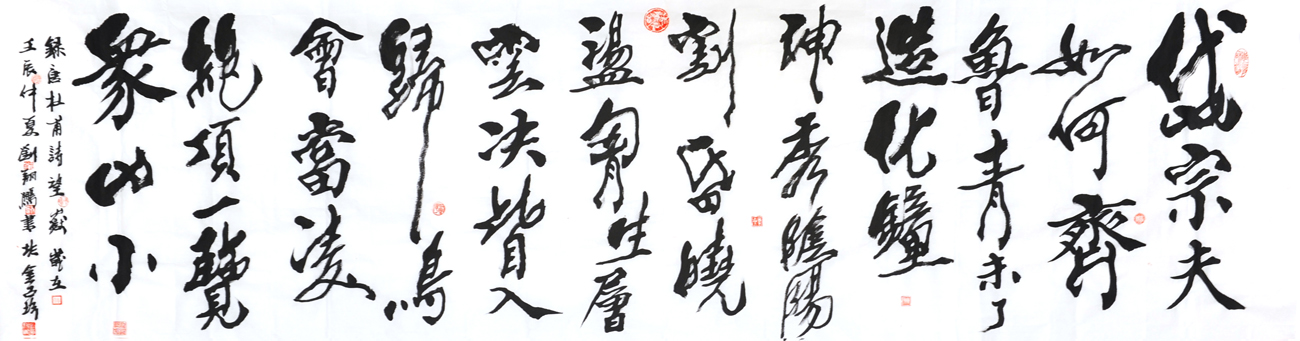 岱宗夫
如何齊
魯青未了
造化鐘
神秀陰陽
割昏曉
盪胷生層
雲决眥入
歸鳥
會當凌
絕頂一覽
衆山小
錄唐杜甫詩望嶽歲在
壬辰仲夏劉書於